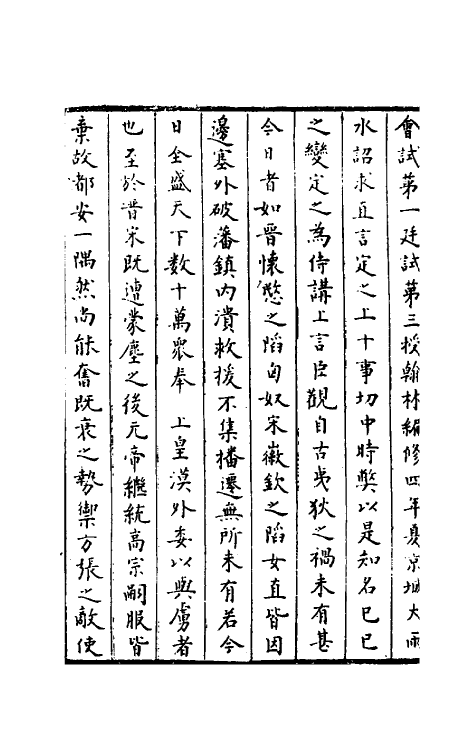 會試第一廷試第三授翰林編修四年夏京城大雨
水詔求直言定之上十事切中時獘以是知名已巳
之變定之為侍講上言臣觀自古夷狄之禍未有甚
今日者如晉懷愍之陷匈奴宋徽欽之陷女直皆因
邊塞外破藩鎮內潰救援不集播遷無所未有若今
日全盛天下數十萬衆奉　上皇漠外委以與虜者
也至於晋宋既遭蒙塵之後元帝繼統高宗嗣服皆
棄故都安一隅然尚能奮既衰之勢禦方張之敵使